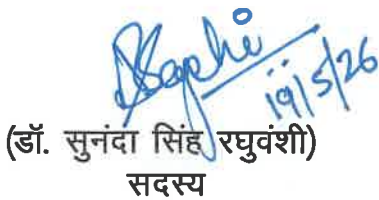 19/5/26
(डॉ. सुनंदा सिंह रघुवंशी)
सदस्य